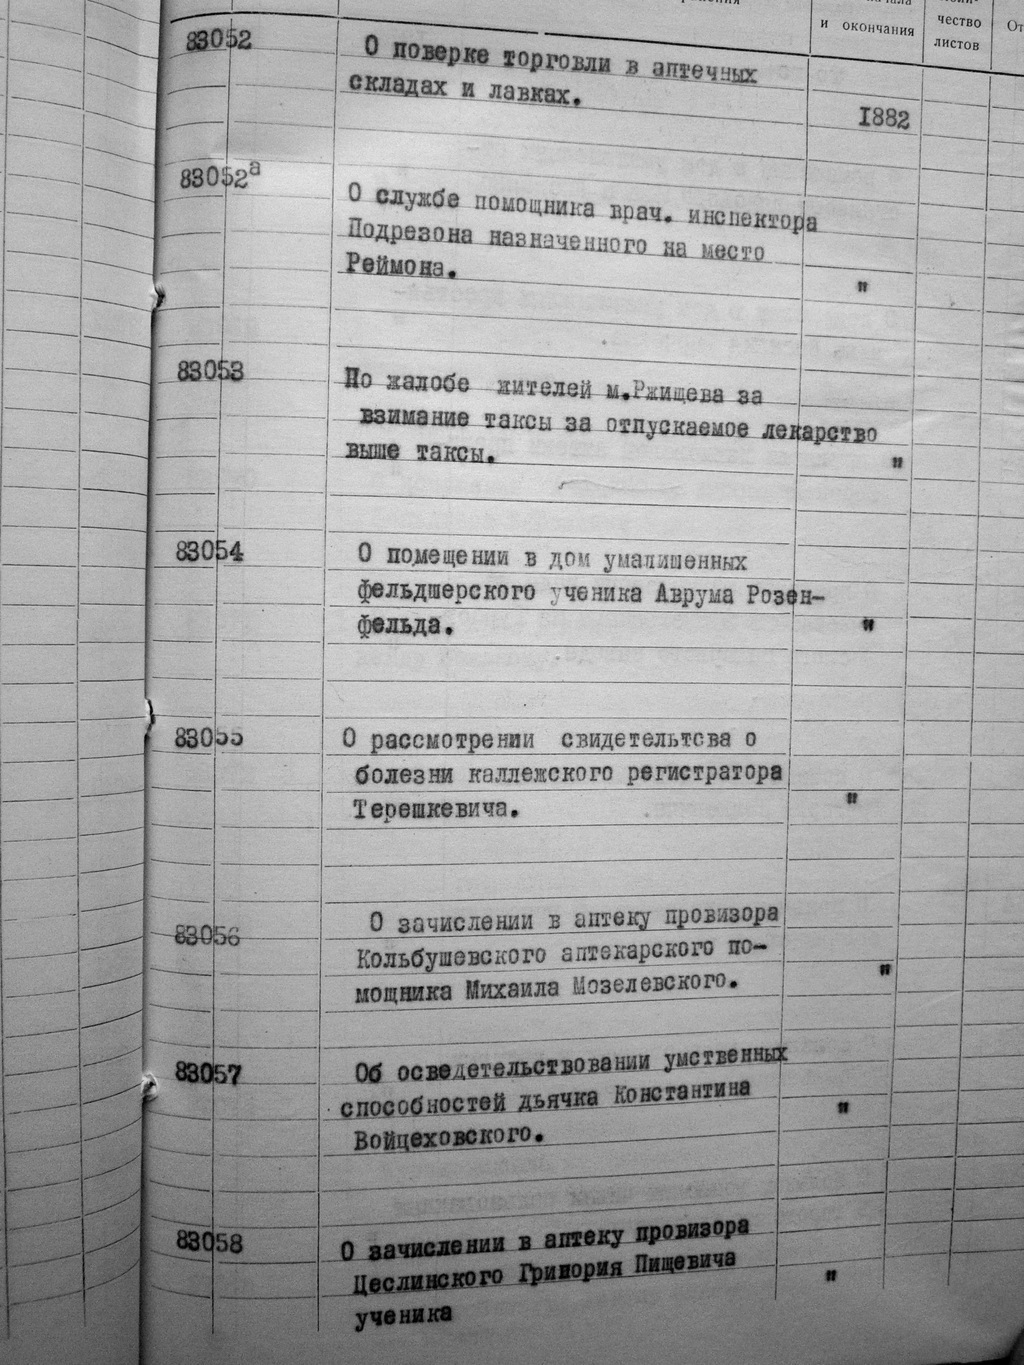 и окончания
чество
листов
От
83052
О поверке торговли в аптечных
складах и лавках.
1882
83052а
О службе помощника врач. инспектора
Подрезона назначенного на место
Реймона.
"
83053
По жалобе жителей м.Ржищева за
взимание таксы за отпускаемое лекарство
выше таксы.
"
83054
О помещении в дом умалишенных
фельдшерского ученика Аврума Розен-
фельда.
"
83055
О рассмотрении свидетельтсва о
болезни каллежского регистратора
Терешкевича.
"
83056
О зачислении в аптеку провизора
Кольбушевского аптекарского по-
мощника Михаила Мозелевского.
"
83057
Об осведетельствовании умственных
способностей дьячка Константина
Войцеховского.
"
83058
О зачислении в аптеку провизора
Цеслинского Григория Пищевича
ученика
"